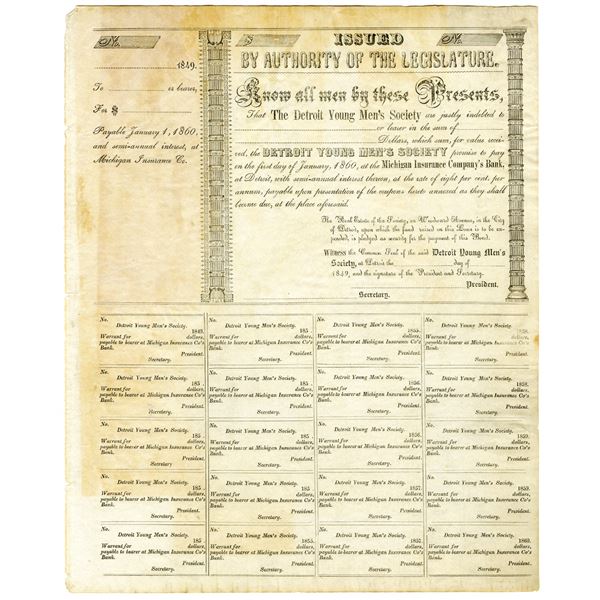 No.
1849.
To or bearer,
For $
Payable January 1, 1860,
and semi-annual interest, at
Michigan Insurance Co.
$ ISSUED No.
BY AUTHORITY OF THE LEGISLATURE.
Know all men by these Presents,
That The Detroit Young Men's Society are justly indebted to
or bearer in the sum of
Dollars, which sum, for value recei-
ved, the DETROIT YOUNG MEN'S SOCIETY promise to pay
on the first day of January, 1860, at the Michigan Insurance Company's Bank,
at Detroit, with semi-annual interest thereon, at the rate of eight per cent. per
annum, payable upon presentation of the coupons hereto annexed as they shall
become due, at the place aforesaid.
The Real Estate of the Society, on Woodward Avenue, in the City
of Detroit, upon which the fund raised on this Loan is to be ex-
pended, is pledged as security for the payment of this Bond.
Witness the Common Seal of the said Detroit Young Men's
Society, at Detroit the day of
1849, and the signature of the President and Secretary.
President.
Secretary.
No.
Detroit Young Men's Society.
1849.
Warrant for dollars,
payable to bearer at Michigan Insurance Co's
Bank. President.
Secretary.
No.
Detroit Young Men's Society.
185
Warrant for dollars,
payable to bearer at Michigan Insurance Co's
Bank. President.
Secretary.
No.
Detroit Young Men's Society.
1855.
Warrant for dollars,
payable to bearer at Michigan Insurance Co's
Bank. President.
Secretary.
No.
Detroit Young Men's Society.
Warrant for dollars,
payable to bearer at Michigan Insurance Co's
Bank. President.
Secretary.
No.
Detroit Young Men's Society.
185
Warrant for dollars,
payable to bearer at Michigan Insurance Co's
Bank. President.
Secretary.
No.
Detroit Young Men's Society.
185
Warrant for dollars,
payable to bearer at Michigan Insurance Co's
Bank. President.
Secretary.
No.
Detroit Young Men's Society.
1856.
Warrant for dollars,
payable to bearer at Michigan Insurance Co's
Bank. President.
Secretary.
No.
Detroit Young Men's Society.
1858.
Warrant for dollars,
payable to bearer at Michigan Insurance Co's
Bank. President.
Secretary.
No.
Detroit Young Men's Society.
185
Warrant for dollars,
payable to bearer at Michigan Insurance Co's
Bank. President.
Secretary.
No.
Detroit Young Men's Society.
185
Warrant for dollars,
payable to bearer at Michigan Insurance Co's
Bank. President.
Secretary.
No.
Detroit Young Men's Society.
1856.
Warrant for dollars,
payable to bearer at Michigan Insurance Co's
Bank. President.
Secretary.
No.
Detroit Young Men's Society.
1859.
Warrant for dollars,
payable to bearer at Michigan Insurance Co's
Bank. President.
Secretary.
No.
Detroit Young Men's Society.
185
Warrant for dollars,
payable to bearer at Michigan Insurance Co's
Bank. President.
Secretary.
No.
Detroit Young Men's Society.
185
Warrant for dollars,
payable to bearer at Michigan Insurance Co's
Bank. President.
Secretary.
No.
Detroit Young Men's Society.
1857.
Warrant for dollars,
payable to bearer at Michigan Insurance Co's
Bank. President.
Secretary.
No.
Detroit Young Men's Society.
1859.
Warrant for dollars,
payable to bearer at Michigan Insurance Co's
Bank. President.
Secretary.
No.
Detroit Young Men's Society.
185
Warrant for dollars,
payable to bearer at Michigan Insurance Co's
Bank. President.
Secretary.
No.
Detroit Young Men's Society.
1855.
Warrant for dollars,
payable to bearer at Michigan Insurance Co's
Bank. President.
Secretary.
No.
Detroit Young Men's Society.
1857.
Warrant for dollars,
payable to bearer at Michigan Insurance Co's
Bank. President.
Secretary.
No.
Detroit Young Men's Society.
1860.
Warrant for dollars,
payable to bearer at Michigan Insurance Co's
Bank. President.
Secretary.